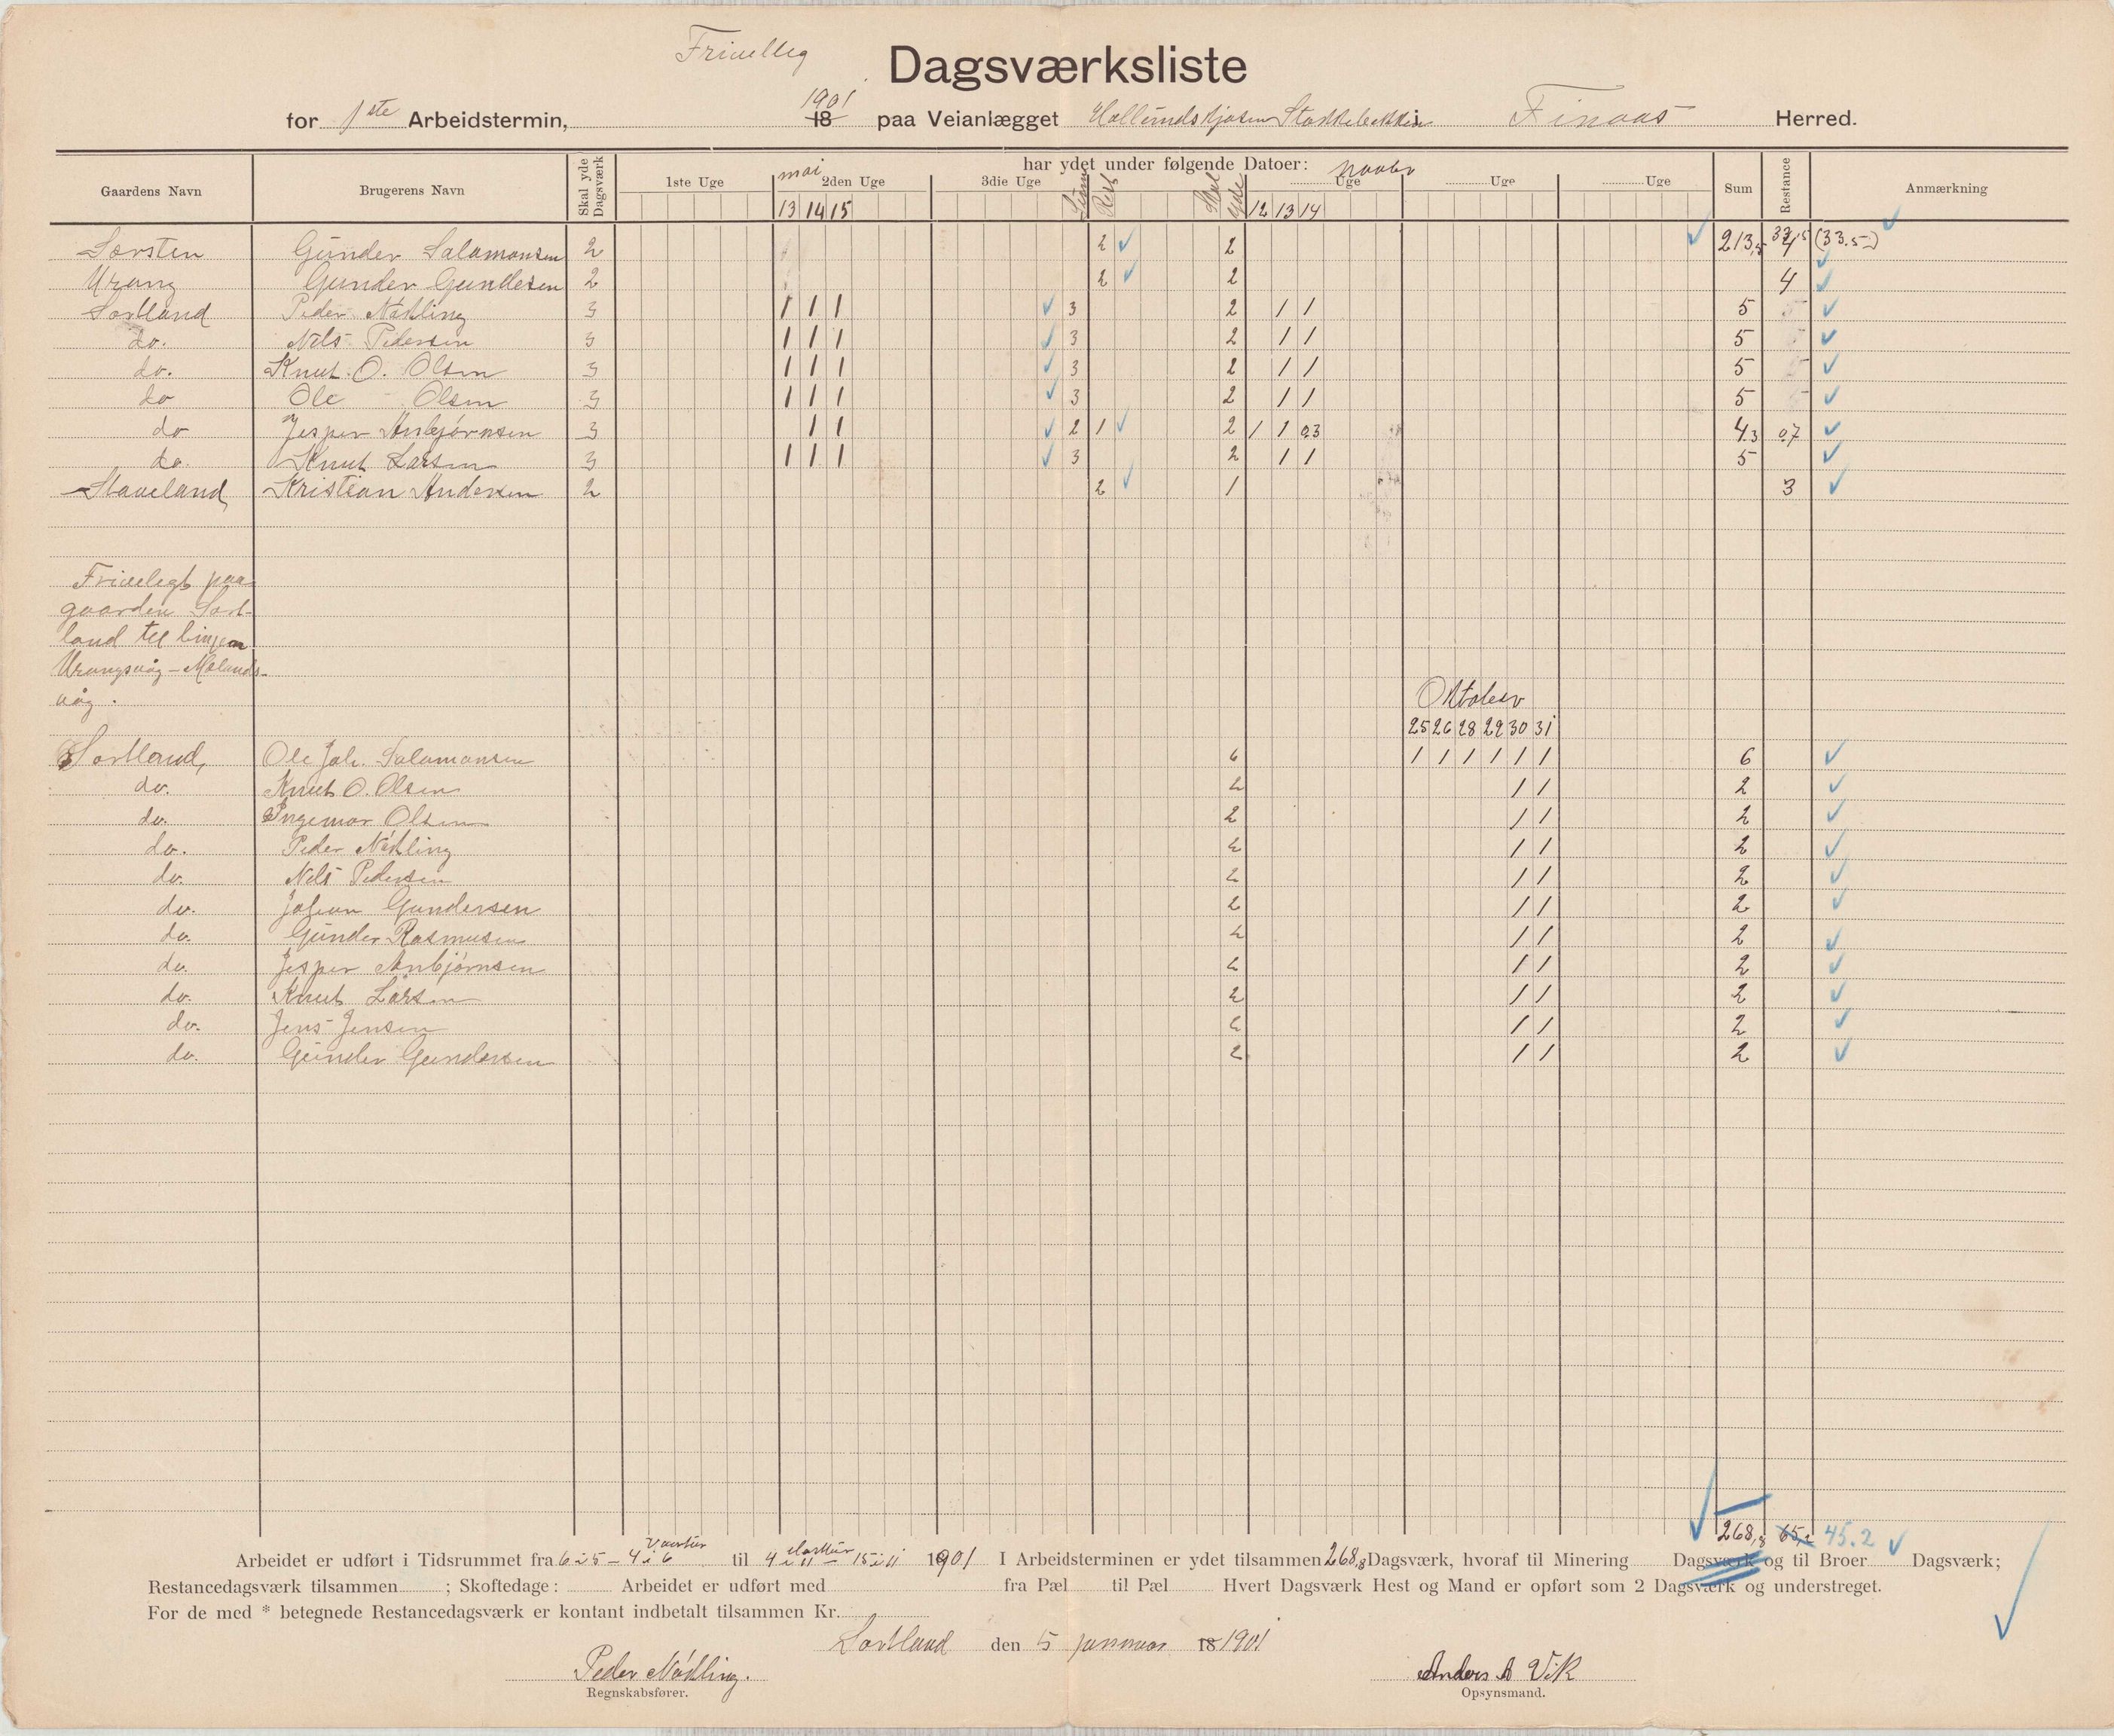 Frivillig
Dagsværksliste
for 1ste Arbeidstermin, 18 1901 paa Veianlægget Finaas Herred.
Gaardens Navn Brugerens Navn Skal yde Dagsværk har ydet under følgende Datoer: Sum Restance Anmærkning
1ste Uge mai 2den Uge 3die Uge Uge Uge Uge
13 14 15 Rest Skal yde 12 13 14
Sørsten Gunder Salamonsen 2 2 2 213,5 4 (33.5)
Urang Gunder Gundesen 2 2 2 4
Sortland Peder Nøkling 3 1 1 1 3 2 1 1 5
do. Nels Pedersen 3 1 1 1 3 2 1 1 5
do. Knut O. Olsen 3 1 1 1 3 2 1 1 5
do Ole Olsen 3 1 1 1 3 2 1 1 5
do Jesper Anbjørnsen 3 1 1 2 1 2 1 1 0,3 4,3 0,7
do. Knut Larsen 3 1 1 1 3 2 1 1 5
Staveland Kristian Andersen 2 2 1 3
Frivelegt paa
gaarden Sort-
land til linjen
Urangsvåg - Mælands-
våg.
Oktober
25 26 28 29 30 31
Sortland, Ole Joh. Salamonsen 6 1 1 1 1 1 1 6
do. Knut O. Olsen 2 1 1 2
do. Ingemar Olsen 2 1 1 2
do. Peder Nøkling 2 1 1 2
do. Nels Pedersen 2 1 1 2
do. Johan Gundersen 2 1 1 2
do. Gunder Rasmusen 2 1 1 2
do. Jesper Anbjørnsen 2 1 1 2
do. Knut Larsen 2 1 1 2
do. Jens Jensen 2 1 1 2
do. Gunder Gundersen 2 1 1 2
268,8 65,2 45.2
Arbeidet er udført i Tidsrummet fra 6 i 5 - 4 i 6 til 4 i 11 - 15 i 11 1901 I Arbeidsterminen er ydet tilsammen 268,8 Dagsværk, hvoraf til Minering Dagsværk og til Broer Dagsværk;
Restancedagsværk tilsammen ; Skoftedage: Arbeidet er udført med fra Pæl til Pæl Hvert Dagsværk Hest og Mand er opført som 2 Dagsværk og understreget.
For de med * betegnede Restancedagsværk er kontant indbetalt tilsammen Kr.
Sortland den 5 januar 18 1901
Peder Nøkling. Anders A Vik
Regnskabsfører. Opsynsmand.